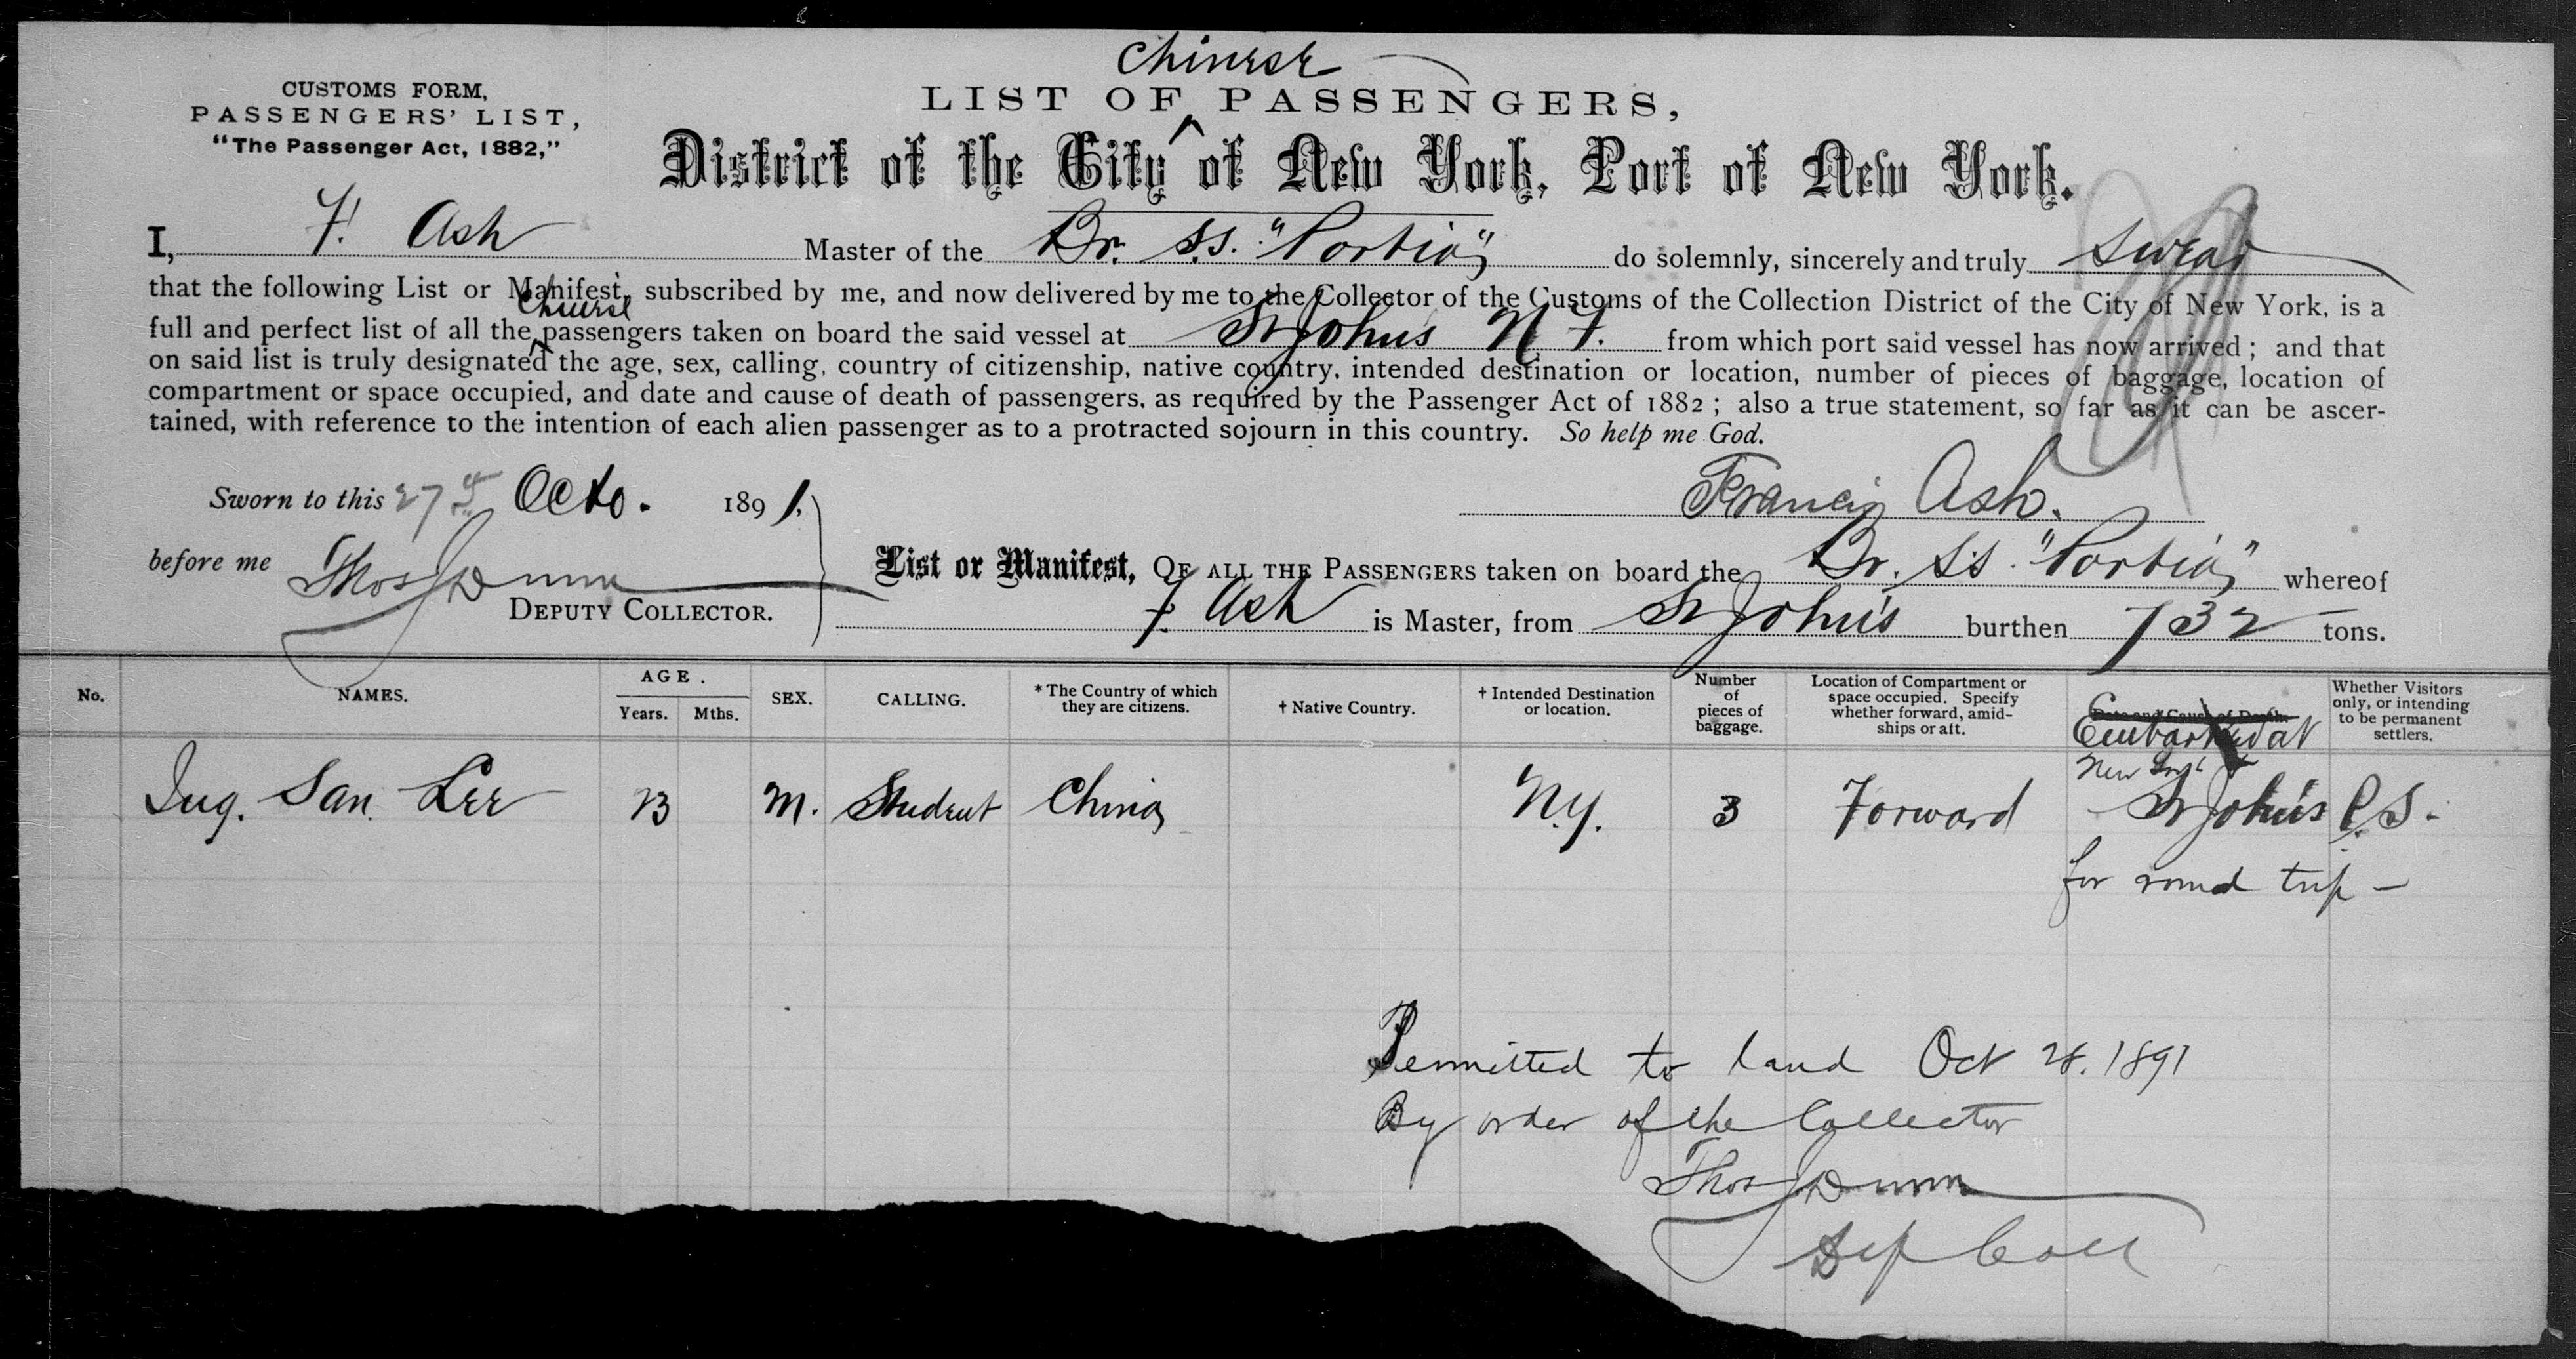 Chinese
CUSTOMS FORM,
PASSENGERS' LIST,
"The Passenger Act, 1882,"
LIST OF PASSENGERS,
District of the City of New York, Port of New York.
I, F. Ash Master of the Br. S.S. "Portia" do solemnly, sincerely and truly swear
that the following List or Manifest, subscribed by me, and now delivered by me to the Collector of the Customs of the Collection District of the City of New York, is a
Chinese
full and perfect list of all the passengers taken on board the said vessel at St Johns N.F. from which port said vessel has now arrived; and that
on said list is truly designated the age, sex, calling, country of citizenship, native country, intended destination or location, number of pieces of baggage, location of
compartment or space occupied, and date and cause of death of passengers, as required by the Passenger Act of 1882; also a true statement, so far as it can be ascer-
tained, with reference to the intention of each alien passenger as to a protracted sojourn in this country. So help me God.
Sworn to this 27th Octo. 1891.
Francis Ash.
before me Thos J Dunn
DEPUTY COLLECTOR.
List or Manifest, OF ALL THE PASSENGERS taken on board the Br. SS. "Portia" whereof
F. Ash is Master, from St John's burthen 732 tons.
No.
NAMES.
AGE.
Years.
Mths.
SEX.
CALLING.
* The Country of which
they are citizens.
† Native Country.
† Intended Destination
or location.
Number
of
pieces of
baggage.
Location of Compartment or
space occupied. Specify
whether forward, amid-
ships or aft.
Date and Cause of Death.
Embarked at
Whether Visitors
only, or intending
to be permanent
settlers.
New York
San Lee M. Student China N.Y. 3 Forward St John's P.S.
for round trip -
Permitted to land Oct 28. 1891
By order of the Collector
Thos J Dunn
Dep Coll